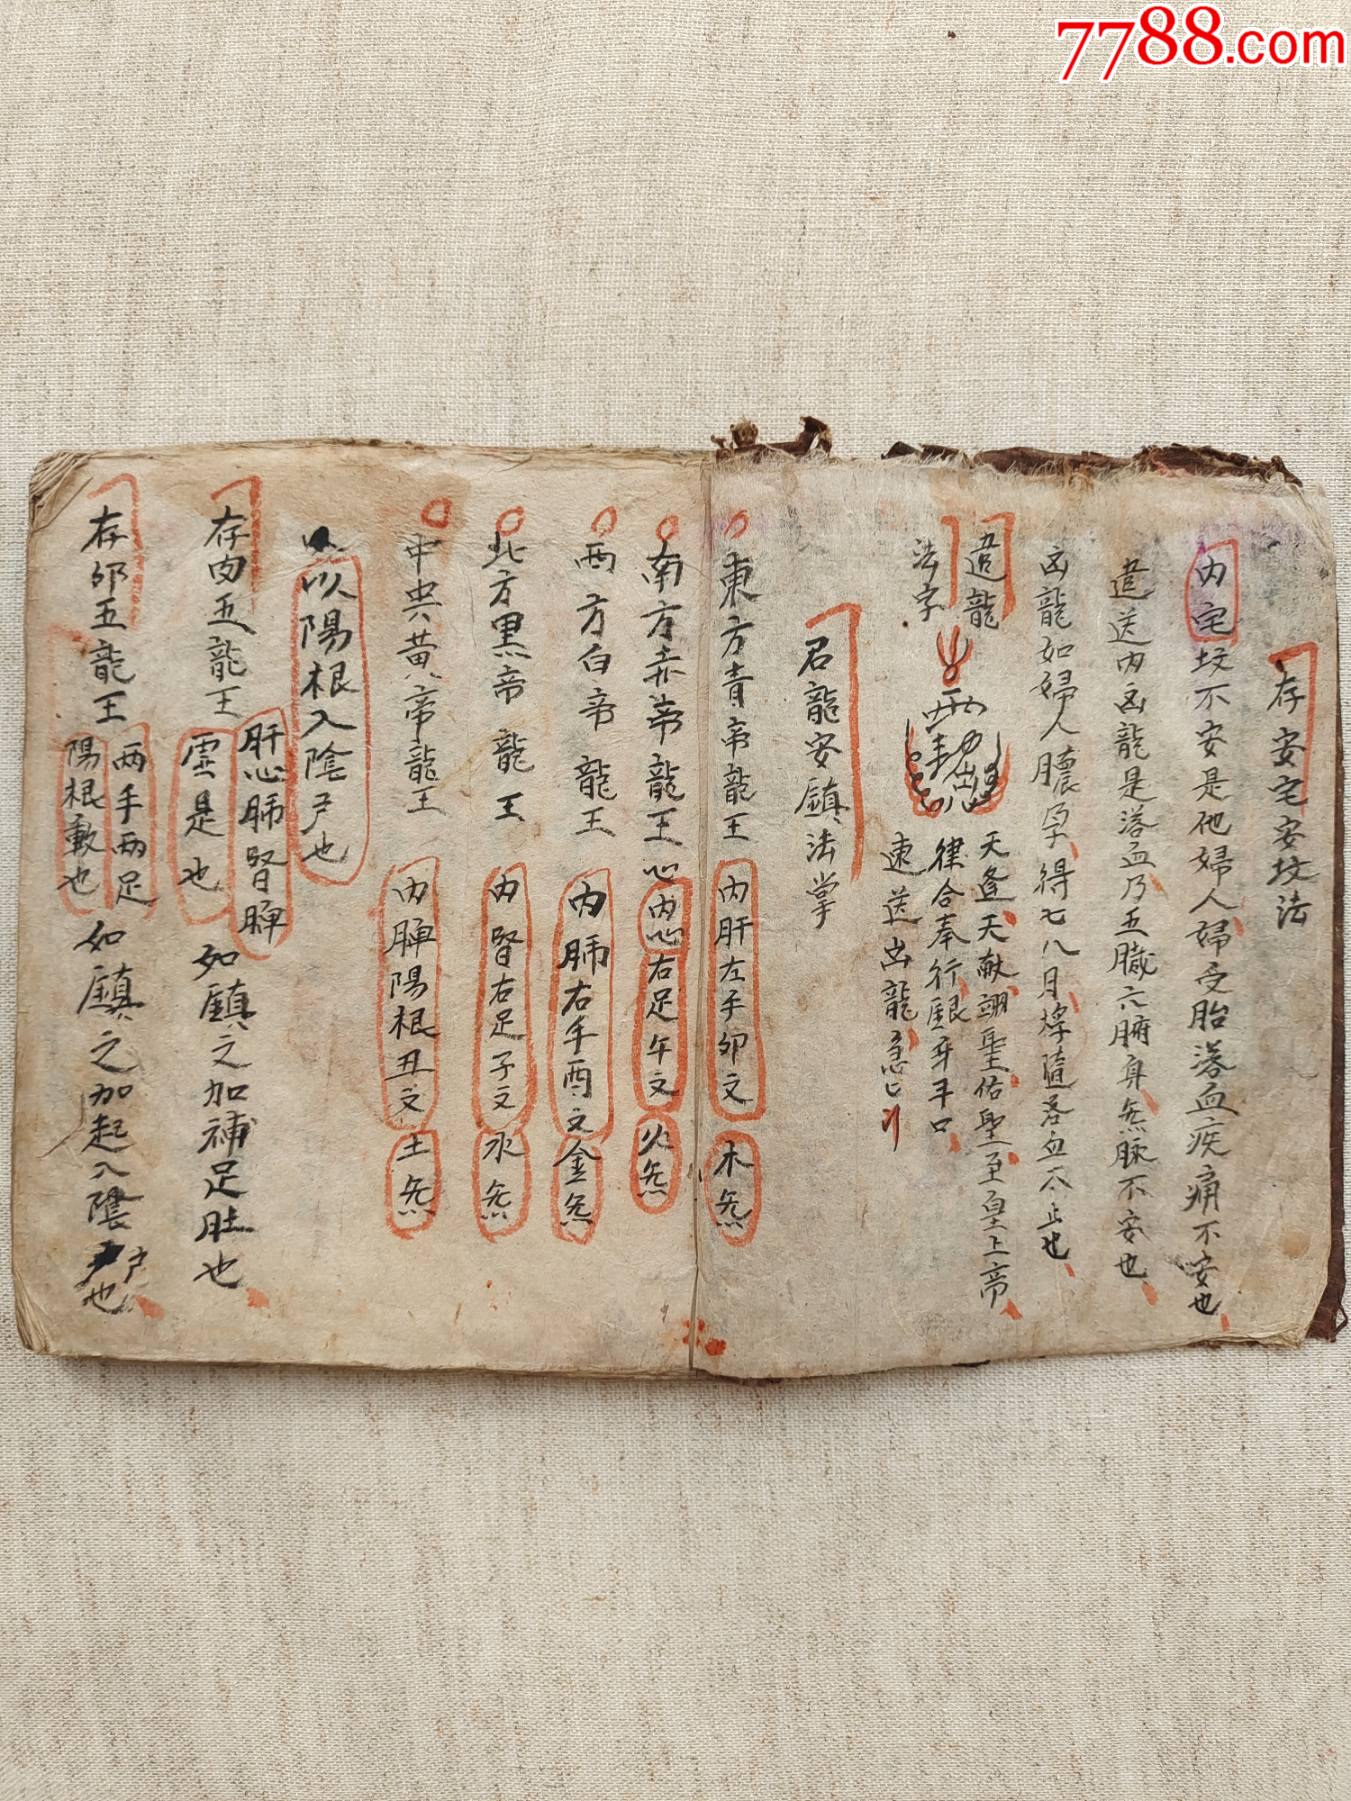 7788.com
存安宅安坟法
内宅坟不安是他婦人婦受胎落血疾痛不安也
遣送内凶龍是落血乃五臓六腑身無脉不安也
凶龍如婦人膿孕得七八月降隨落血不止也
造龍
法字
天逢天献翊聖佑聖至皇上帝
律合奉行銀牙丰口
速送出龍急
君龍安鎮法掌
東方青帝龍王 内肝左手卯文 木炁
南方赤帝龍王心 内心右足午文 火炁
西方白帝龍王 内肺右手酉文 金炁
北方黑帝龍王 内腎右足子文 水炁
中央黄帝龍王 内脾陽根丑文 土炁
以陽根入陰户也
存内五龍王 肝心肺腎脾 霊是也 如鎮之加補足肚也
存卯五龍王 两手两足 陽根動也 如鎮之加起入陰户也